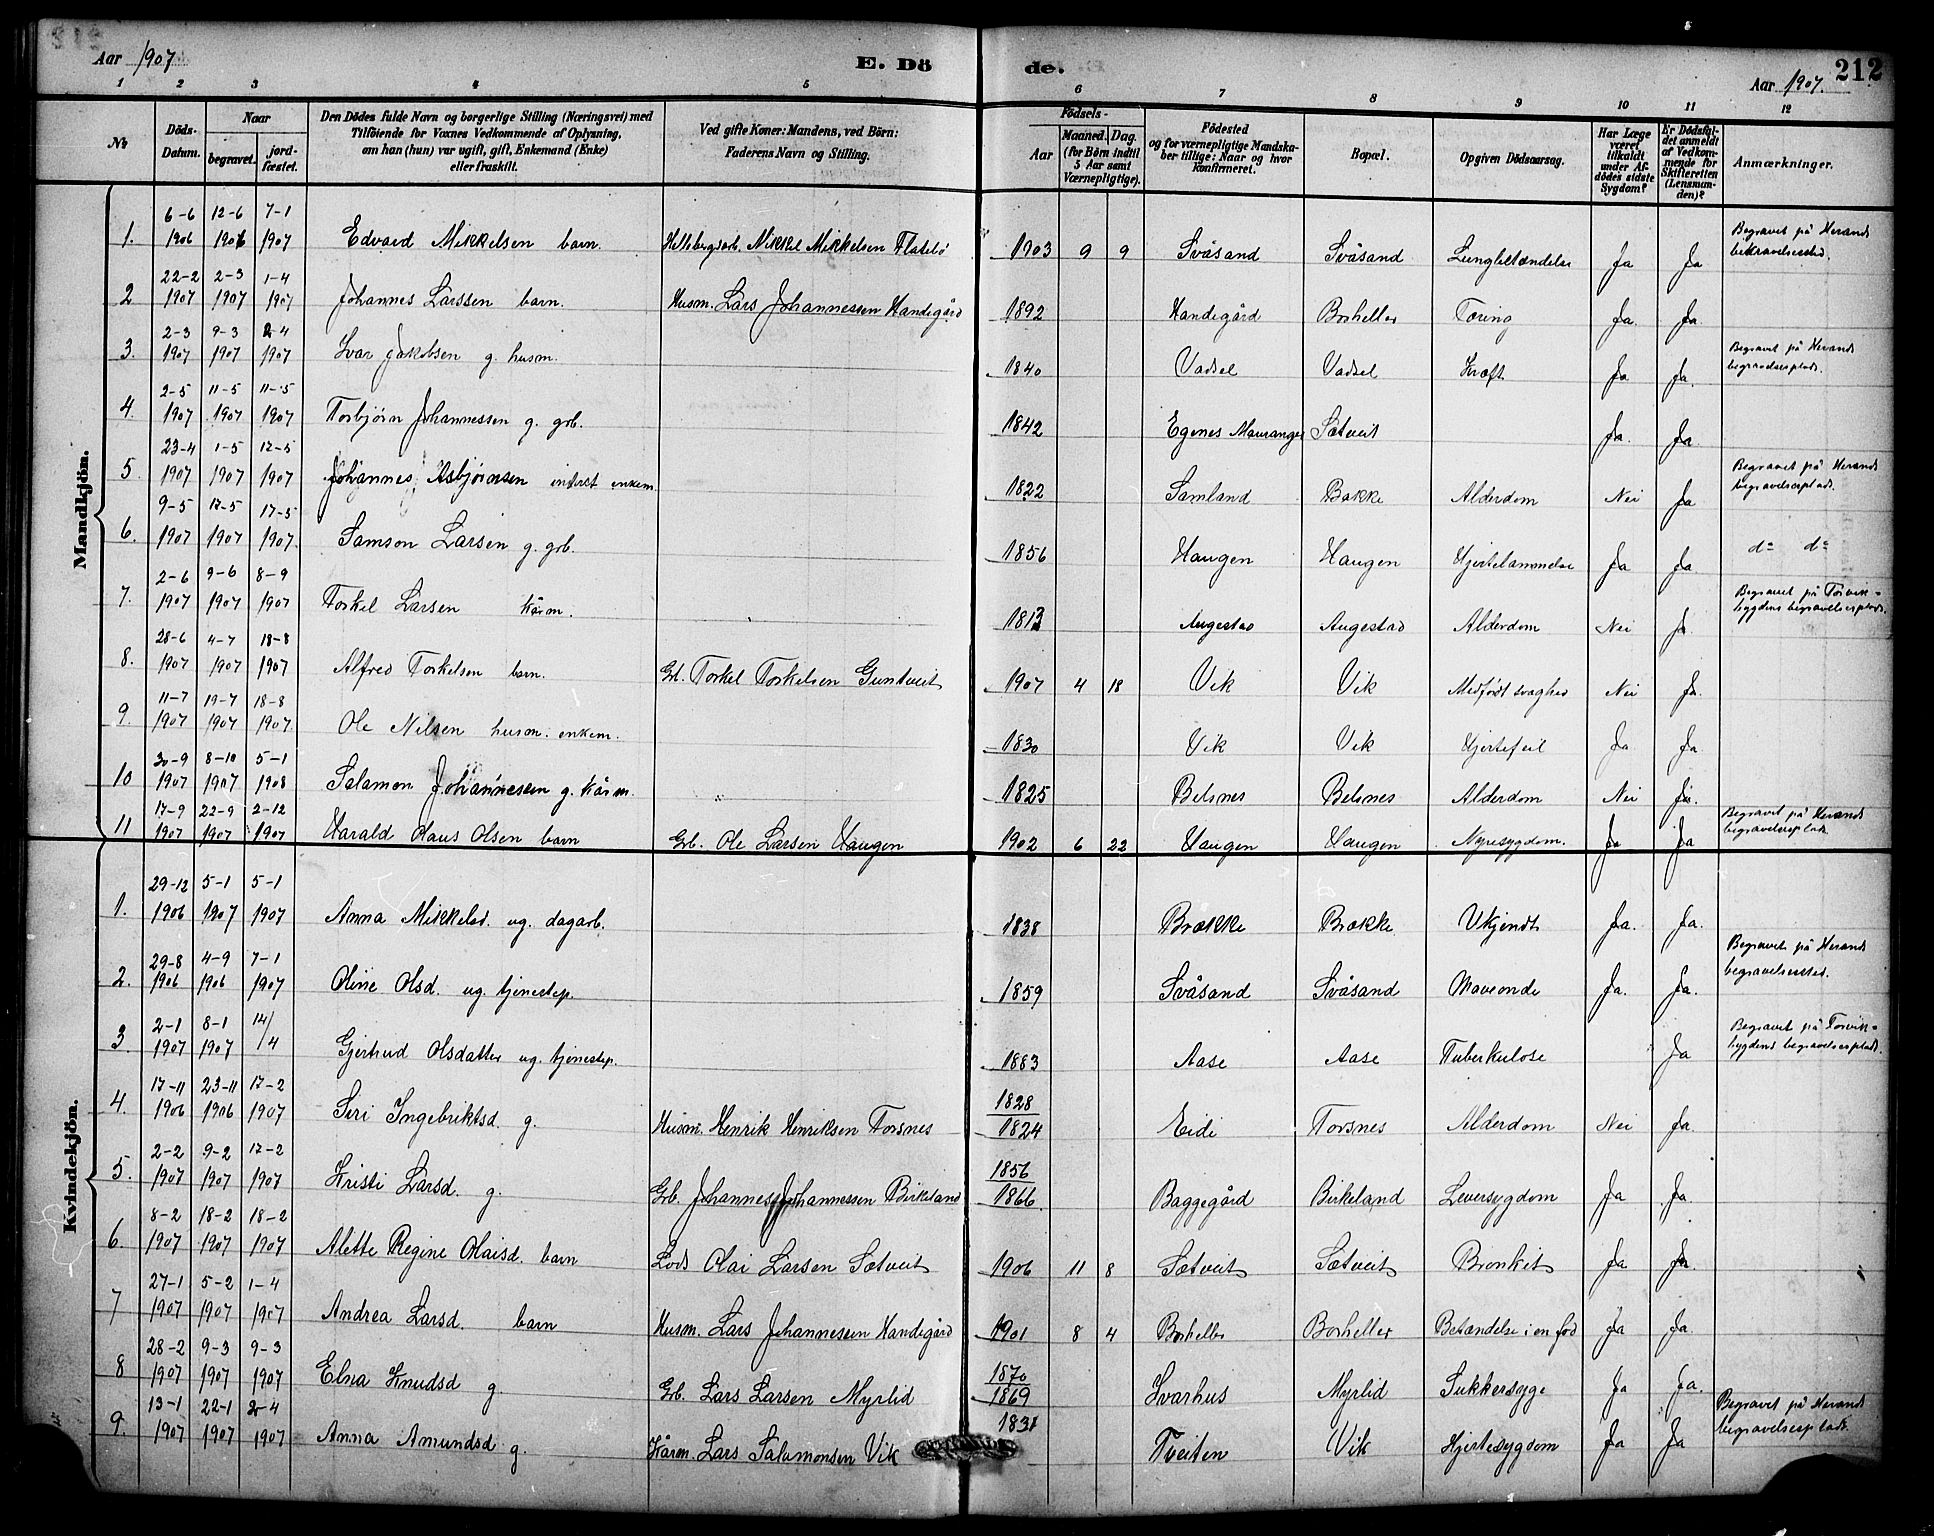 Aar 1907 E. Dö de. Aar 1907. 212
1 2 3 4 5 6 7 8 9 10 11 12
No Döds-Datum. Naar begravet. jordfæstet. Den Dödes fulde Navn og borgerlige Stilling (Næringsvei) med Tilföiende for Voxnes Vedkommende af Oplysning, om han (hun) var ugift, gift, Enkemand (Enke) eller fraskilt. Ved gifte Koner: Mandens, ved Börn: Faderens Navn og Stilling. Födsels- Aar Maaned. Dag. (for Börn indtil 5 Aar samt Værnepligtige). Födested og for værnepligtige Mandskaber tillige: Naar og hvor konfirmeret. Bopæl. Opgiven Dödsaarsag. Har Læge været tilkaldt under Afdödes sidste Sygdom? Er Dödsfaldet anmeldt af Vedkommende for Skifteretten (Lensmanden)? Anmærkninger.
Mandkjön.
1. 6-6 1906 12-6 1906 7-1 1907 Edvard Mikkelsen barn. Hellebergsarb. Mikkel Mikkelsen Flatebø 1903 9 9 Svåsand Svåsand Lungbetændelse Ja Ja Begravet på Herands begravelsessted.
2 22-2 1907 2-3 1907 1-4 1907 Johannes Larssen barn. Husm. Lars Johannessen Handegård 1892 Handegård Borheller Tæring Ja. Ja.
3. 2-3 1907 9-3 1907 2-4 1907 Ivar Jakobsen g. husm. 1840 Vadsel Vadsel Kræft Ja Ja. Begravet på Herands begravelsesplads.
4. 2-5 1907 11-5 1907 11-5 1907 Torbjørn Johannessen g. grb. 1842 Egenes Mauranger Sætveit Ja. Ja
5 23-4 1907 1-5 1907 12-5 1907 Johannes Asbjørnsen inderst enkem. 1822 Samland Bakke Alderdom Nei Ja Begravet på Herands begravelsesplads.
6. 9-5 1907 17-5 1907 17-5 1907. Samson Larsen g. grb. 1856 Haugen Haugen Hjertelammelse Ja Ja do do
7. 2-6 1907 9-6 1907 8-9 1907 Torkel Larsen kårm. 1813 Augestad Augestad Alderdom Nei Ja Begravet på Torvikbygdens begravelsesplads.
8. 28-6 1907 4-7 1907 18-8 1907 Alfred Torkelsen barn. Grb. Torkel Torkelsen Guntveit 1907 4 18 Vik Vik Medfødt svaghed Nei Ja.
9. 11-7 1907 19-7 1907 18-8 1907 Ole Nilsen husm. enkem. 1830 Vik Vik Hjertefeil Ja Ja
10 30-9 1907 8-10 1907 5-1 1908 Salamon Johannessen g. kårm. 1825 Belsnes Belsnes Alderdom Nei Ja.
11 17-9 1907 22-9 1907 2-12 1907 Harald Olaus Olsen barn Grb. Ole Larsen Haugen 1902 6 22 Haugen Haugen Nyresygdom. Ja Ja Begravet på Herands begravelsesplads.
Kvindekjön.
1. 29-12 1906 5-1 1907 5-1 1907 Anna Mikkelsd. ug. dagarb. 1838 Brække Brække Ukjendt Ja. Ja.
2. 29-8 1906 4-9 1906 7-1 1907 Oline Olsd. ug. tjenestep. 1859 Svåsand Svåsand Maveonde Ja. Ja. Begravet på Herands begravelsessted.
3. 2-1 1907 8-1 1907 14/4 Gjertrud Olsdatter ug. tjenestep. 1883 Aase Aase Tuberkulose Ja Begravet på Torvikbygdens begravelsesplads.
4. 17-11 1906 23-11 1906 17-2 1907 Siri Ingebriktsd. g. Husm. Henrik Henriksen Torsnes 1828 1824 Eide Torsnes Alderdom Nei Ja.
5. 2-2 1907 9-2 1907 17-2 1907 Kristi Larsd. g. Grb. Johannes Johannessen Birkeland 1856 1866 Baggegård Birkeland Leversygdom Ja Ja.
6. 8-2 1907 18-2 1907 18-2 1907 Alette Regine Olaisd. barn Lods Olai Larsen Sætveit 1906 11 8 Sætveit Sætveit Bronkit Ja Ja.
7 27-1 1907 5-2 1907 1-4 1907 Andrea Larsd. barn Husm. Lars Johannessen Handegård 1901 8 4 Borheller Borheller Betændelse i en fod Ja Ja.
8 28-2 1907 9-3 1907 9-3 1907 Elna Knudsd g. Grb. Lars Larsen Myrlid 1870 1869 Ivarhus Myrlid Sukkersyge Ja Ja.
9. 13-1 1907 22-1 1907 2-4 1907 Anna Amundsd g. Kårm. Lars Salamonsen Vik 1831 Tveiten Vik Hjertesygdom Ja Ja Begravet på Herands begravelsesplads.